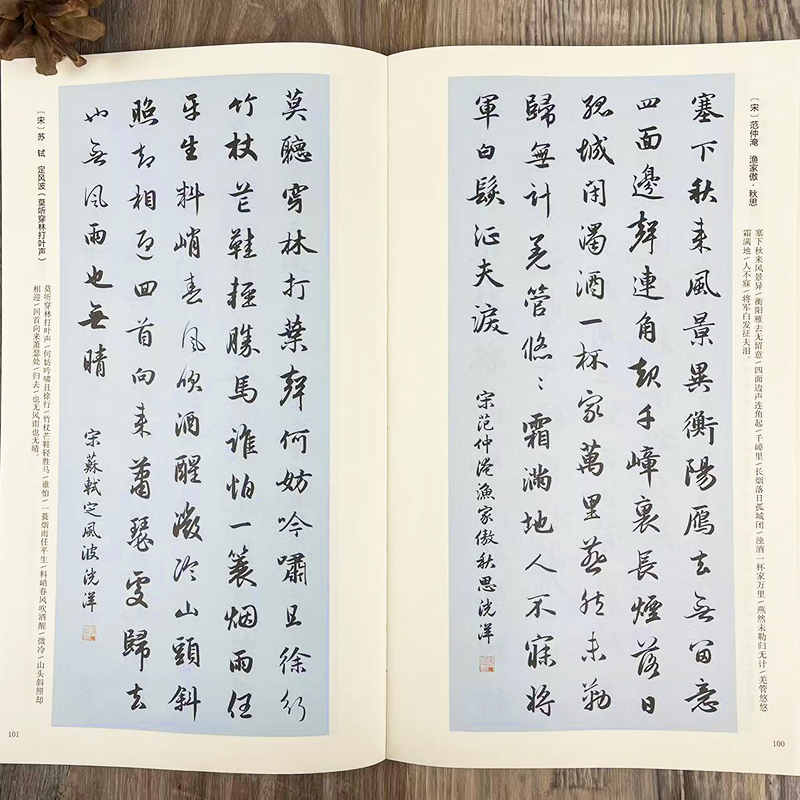 〔宋〕范仲淹 渔家傲·秋思
塞下秋来风景异/衡阳雁去无留意/四面边声连角起/千嶂里/长烟落日孤城闭/浊酒一杯家万里/燕然未勒归无计/羌管悠悠
霜满地/人不寐/将军白发征夫泪。
塞下秋来風景異衡陽鴈去無留意
四面邊聲連角起千嶂裏長煙落日
孤城閉濁酒一杯家萬里燕然未勒
歸無計羌管悠〻霜滿地人不寐將
軍白髮征夫淚
宋范仲淹漁家傲秋思洗洋
100
莫聽穿林打葉聲何妨吟嘯且徐行
竹杖芒鞋輕勝馬誰怕一蓑烟雨任
平生料峭春風吹酒醒微冷山頭斜
照却相迎回首向来蕭瑟處歸去
也無風雨也無晴
宋蘇軾定風波洗洋
〔宋〕苏 轼 定风波（莫听穿林打叶声）
莫听穿林打叶声/何妨吟啸且徐行/竹杖芒鞋轻胜马/谁怕/一蓑烟雨任平生/料峭春风吹酒醒/微冷/山头斜照却
相迎/回首向来萧瑟处/归去/也无风雨也无晴。
101